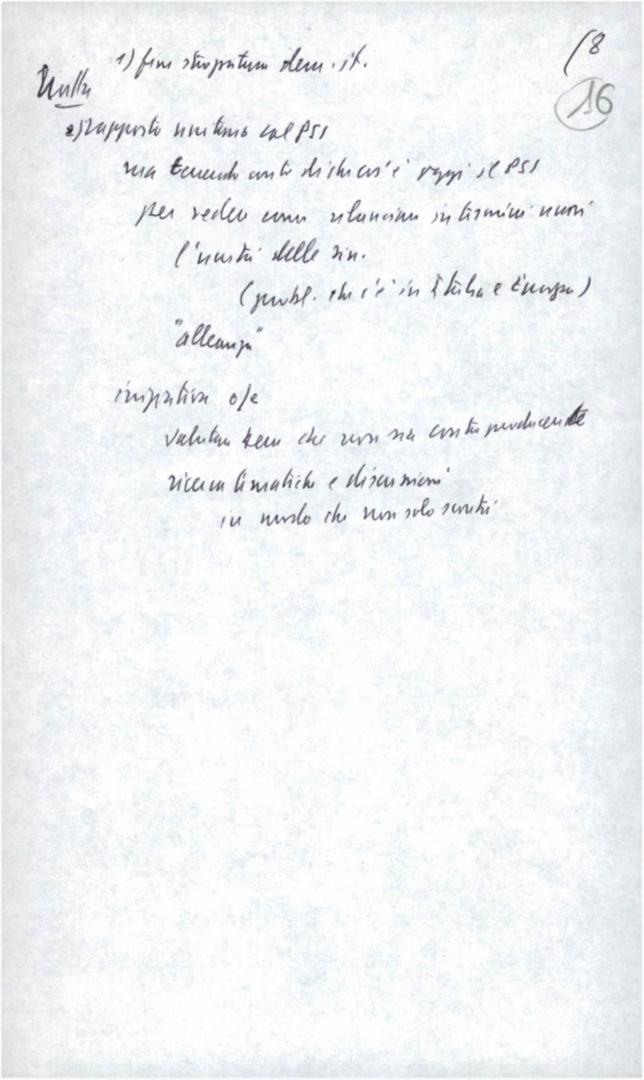 (8
16
1) fine strozzatura dem. it.
2) rapporto unitario col PSI
ma tenendo conto di che cos'è oggi il PSI
per vedere come rilanciare in termini nuovi
l'unità delle sin.
(probl. che c'è in Italia e Europa)
"alleanza"
iniziativa
valutare bene che non sia controproducente
ricerca tematiche e discussioni
in modo che non solo